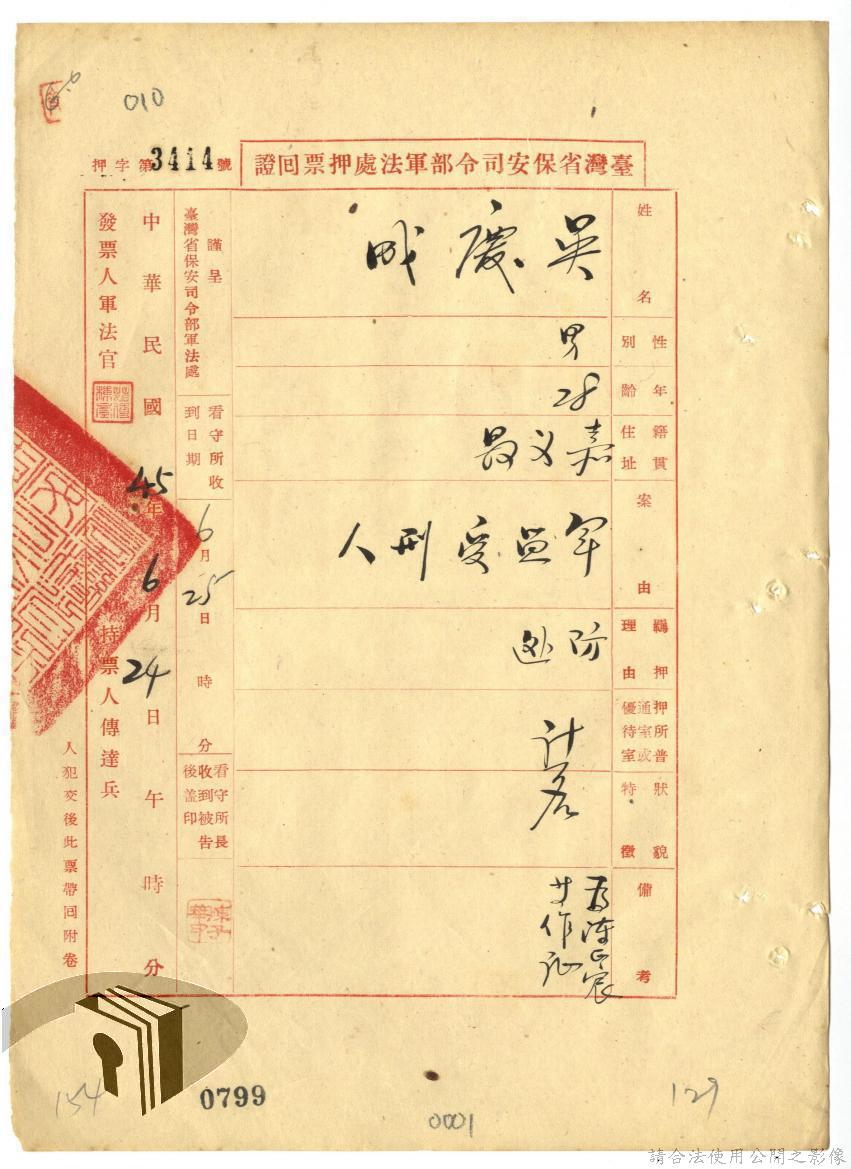 010
臺灣省保安司令部軍法處押票回證
押字第3414號
姓名
吳慶
性別
男
年齡
28
籍貫住址
嘉义
案由
軍監受刑人
羈押理由
防逃
押所普通室或優待室
狀貌特徵
備考
作証
謹呈
臺灣省保安司令部軍法處
看守所收到日期
6月25日時分
看守所長收到被告後蓋印
中華民國45年6月24日午時分
發票人軍法官
持票人傳達兵
人犯交後此票帶回附卷
154
0799
0001
129
請合法使用公開之影像